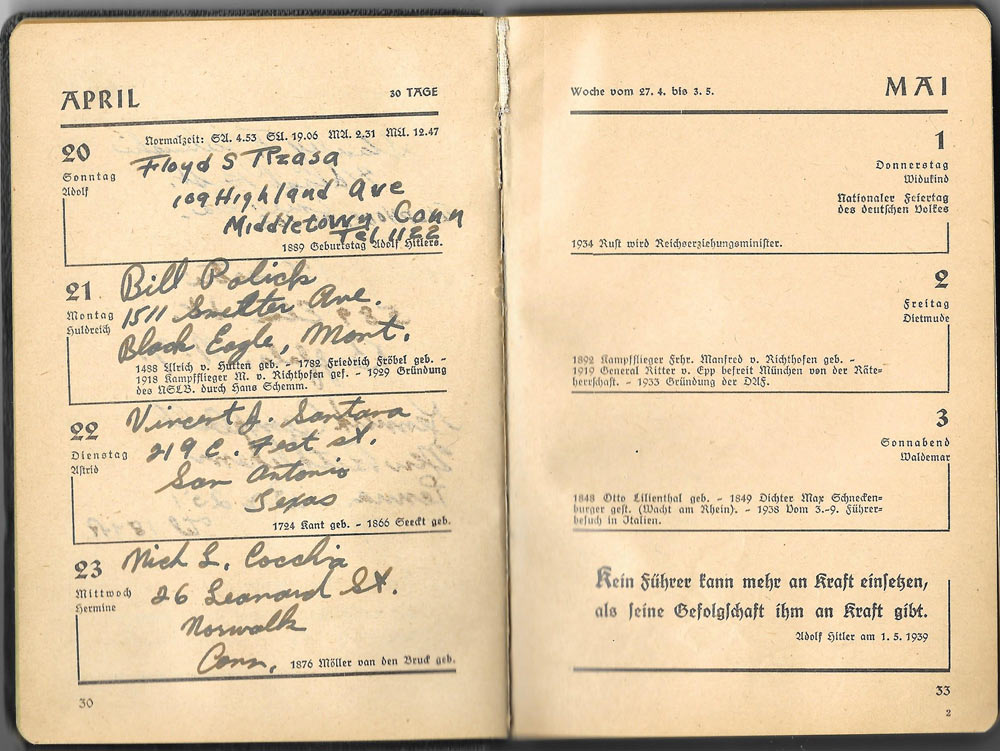 APRIL 30 TAGE
Normalzeit: SA. 4.53 SU. 19.06 MA. 2.31 MU. 12.47
20
Sonntag
Adolf
Floyd S Rzasa
109 Highland Ave
Middletown Conn
Tel 1122
1889 Geburtstag Adolf Hitlers.
21
Montag
Huldreich
Bill Polich
1511 Smelter Ave.
Black Eagle, Mont.
1488 Ulrich v. Hutten geb. - 1782 Friedrich Fröbel geb. -
1918 Kampfflieger M. v. Richthofen gef. - 1929 Gründung
des NSLB. durch Hans Schemm.
22
Dienstag
Astrid
Vincent J. Santara
219 E. Fest st.
San Antonio
Texas
1724 Kant geb. - 1866 Seeckt geb.
23
Mittwoch
Hermine
Nick L. Cocchia
26 Leonard St.
Norwalk
Conn.
1876 Möller van den Bruck geb.
30
Woche vom 27. 4. bis 3. 5. MAI
1
Donnerstag
Widukind
Nationaler Feiertag
des deutschen Volkes
1934 Rust wird Reichserziehungsminister.
2
Freitag
Dietmude
1892 Kampfflieger Frhr. Manfred v. Richthofen geb. -
1919 General Ritter v. Epp befreit München von der Räte-
herrschaft. - 1933 Gründung der DAF.
3
Sonnabend
Waldemar
1848 Otto Lilienthal geb. - 1849 Dichter Max Schnecken-
burger gest. (Wacht am Rhein). - 1938 Vom 3.-9. Führer-
besuch in Italien.
Kein Führer kann mehr an Kraft einsetzen,
als seine Gefolgschaft ihm an Kraft gibt.
Adolf Hitler am 1. 5. 1939
33
2